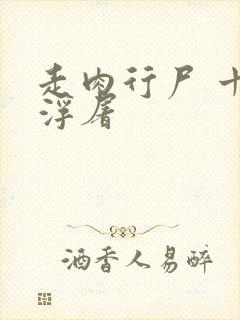 走肉行尸 十
浮屠
酒香人易醉